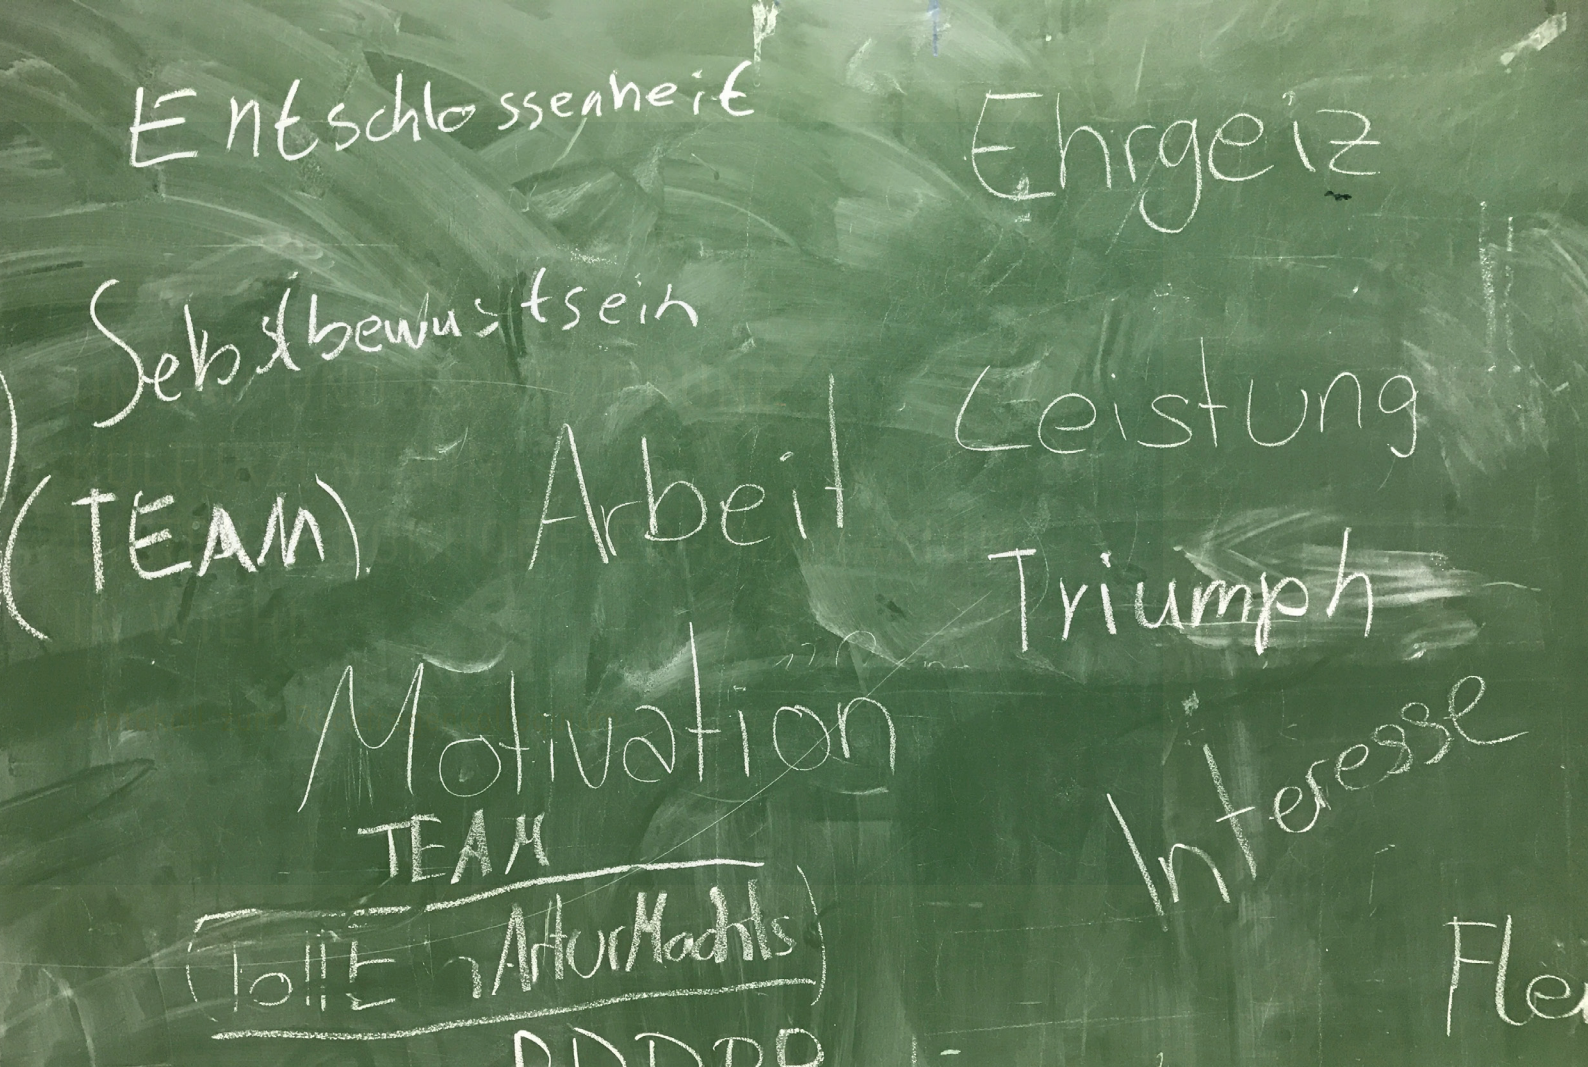 Entschlossenheit
Ehrgeiz
Selbstbewustsein
Leistung
(TEAM)
Arbeit
Triumph
Motivation
Interesse
TEAM
ArturMachts
Fle